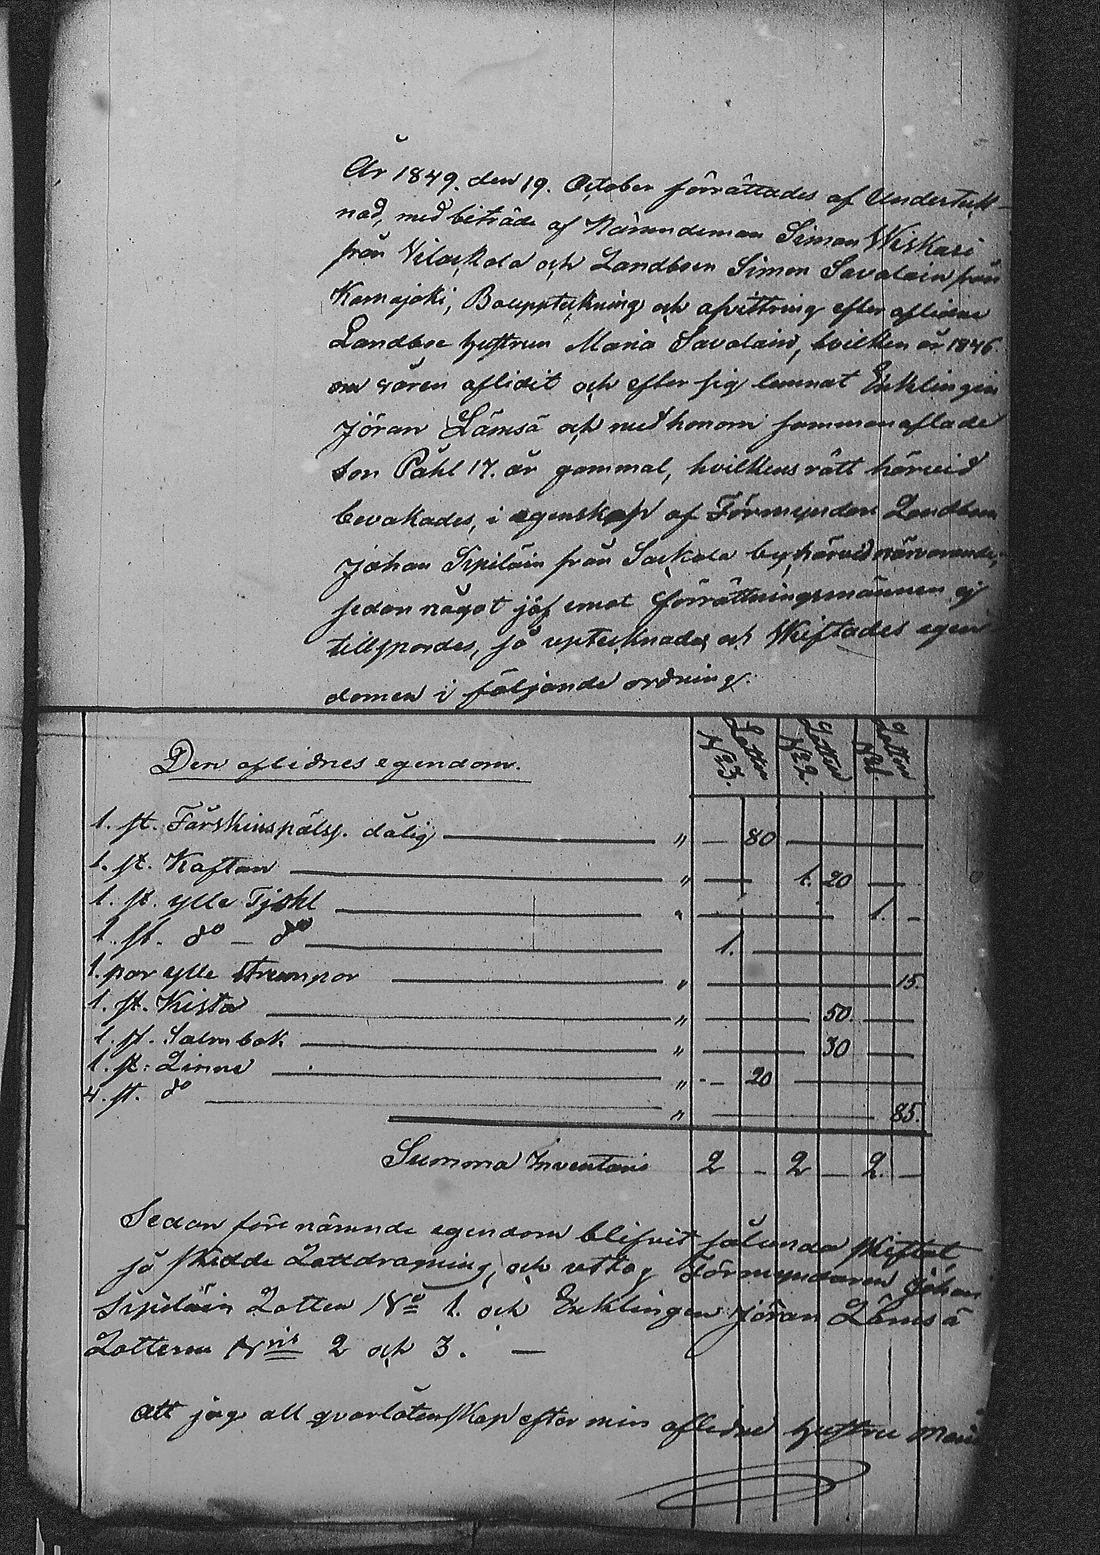 År 1849. den 19. October förrättades af Underteck-
nad, med biträde af Nämndeman Simon Wiskari
från Vilackala och Landboen Simon Savolain från
Kamajoki, Bouppteckning och afvittring efter aflidne
Landboe hustrun Maria Savolain, hvilken år 1846.
om våren aflidit och efter sig lemnat Enklingen
Jöran Lämsä och med honom sammanaflade
son Påhl 17. år gammal, hvilkens rätt härvid
bevakades, i egenskap af Förmyndare Landboen
Johan Sipiläin från Sackala by, härvid närvarande;
sedan något jäf emot förrättningsmännen ej
tillspordes, så upptecknades och skiftades egen
domen i följande ordning:
Den aflidnes egendom. Lotter N:o 3. Lotter N:o 2. Lotter N:o 1.
1. st. Fårskinspälss. dålig — " — 80 —
1. st. Kaftan — " — 1. 20 —
1. st. ylle Tjohl — " — 1. —
1. st. do — do — 1. —
1. par ylle strumpor — " — 15.
1. st. Kista — " — 50. —
1. st. Salmbok — " — 30 —
1. st. Linne — " — 20 —
4. st. do — " — 85.
Summa Inventarie 2 — 2 — 2. —
Sedan förenämnde egendom blifvit sålunda skiftat
så skedde Lottdragning, och uttog Förmyndaren Johan
Sipiläin Lotten No 1. och Enklingen Jöran Lämsä
Lotterne Nris 2 och 3. —
Att jag all qvarlåtenskap efter min aflidne hustru Maria